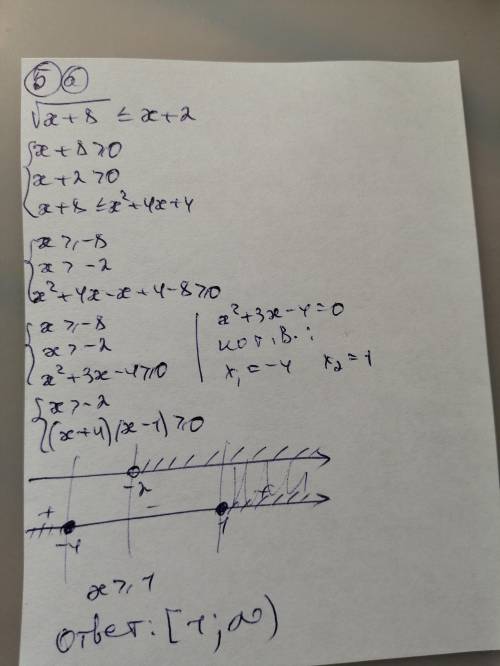 5 а
√x+8 ≤ x+2
{ x+8 ≥ 0
x+2 ≥ 0
x+8 ≤ x²+4x+4
{ x ≥ -8
x > -2
x²+4x-x+4-8 ≥ 0
{ x ≥ -8
x > -2
x²+3x-4 ≥ 0
x²+3x-4=0
по т. В.:
x₁=-4 x₂=1
{ x > -2
(x+4)(x-1) ≥ 0
-2
+ - +
-4 1
x ≥ 1
Ответ: [1; ∞)